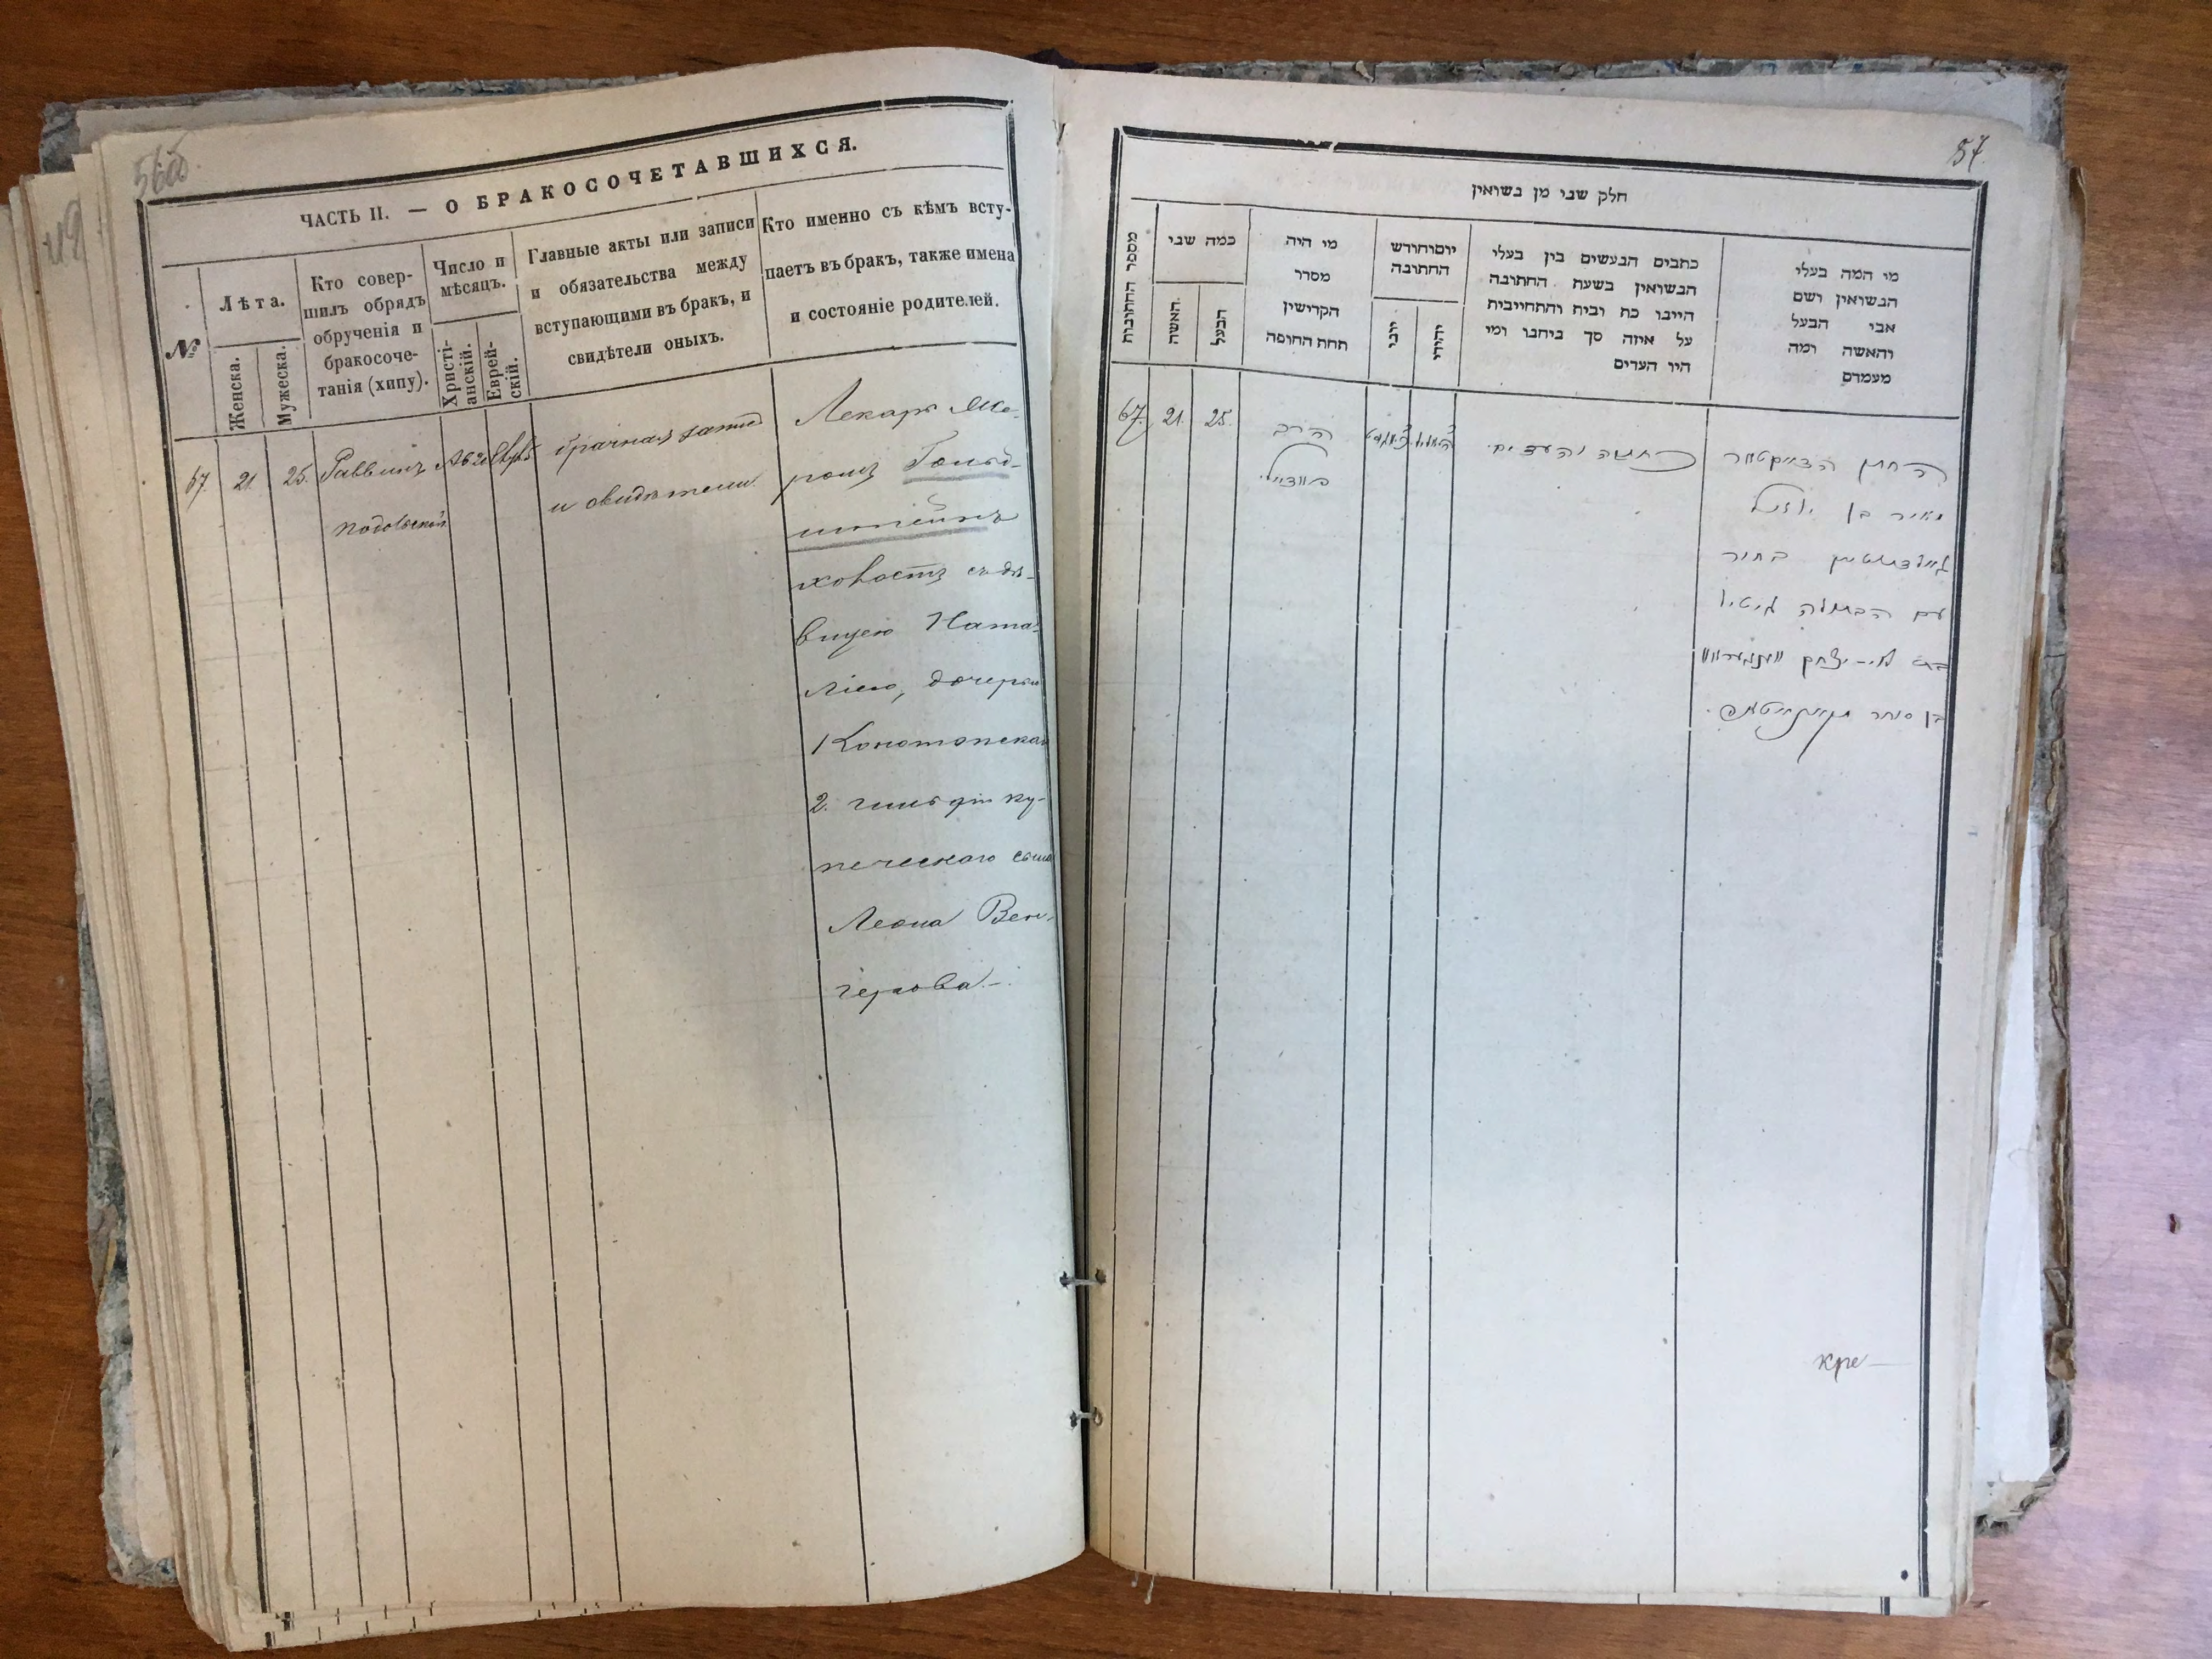 56об.
ЧАСТЬ II. — О БРАКОСОЧЕТАВШИХСЯ.
№
Лѣта.
Женска.
Мужеска.
Кто совер-
шилъ обрядъ
обрученія и
бракосоче-
танія (хипу).
Число и
мѣсяцъ.
Христі-
анскій.
Еврей-
скій.
Главные акты или записи
и обязательства между
вступающими въ бракъ, и
свидѣтели оныхъ.
Кто именно съ кѣмъ всту-
паетъ въ бракъ, также имена
и состояніе родителей.
67.
21
25.
Раввинъ
Подольскій
брачная запись
и свидѣтели.
Лекарь Ме-
ромъ Гольд-
штейнъ
холостъ съ дѣ-
вицею Ната-
ліею, дочерью
Конотопскаго
2. гильдіи ку-
печескаго сына
Леона Вен-
герова.—.
57.
חלק שני מן נשואין
מספר החתובות
כמה שני
האשה
הבעל
מי היה
מסדר
הקדישין
תחת החופה
יום וחודש
החתובה
יוני
יהודי
כתבים הנעשים בין בעלי
הנשואין בשעת החתובה
היינו כח ובית והתחייבית
על איזה סך ניתנו ומי
היו העדים
מי המה בעלי
הנשואין ושם
אבי הבעל
והאשה ומה
מעמדם
67.
21.
25.
הרב
כתובה והעדים.
החתן הדאקטאר
מאיר בן
גאלדשטיין בחור
עם הבתולה
בת יצחק ווענגעראוו
בן סוחר
кре—